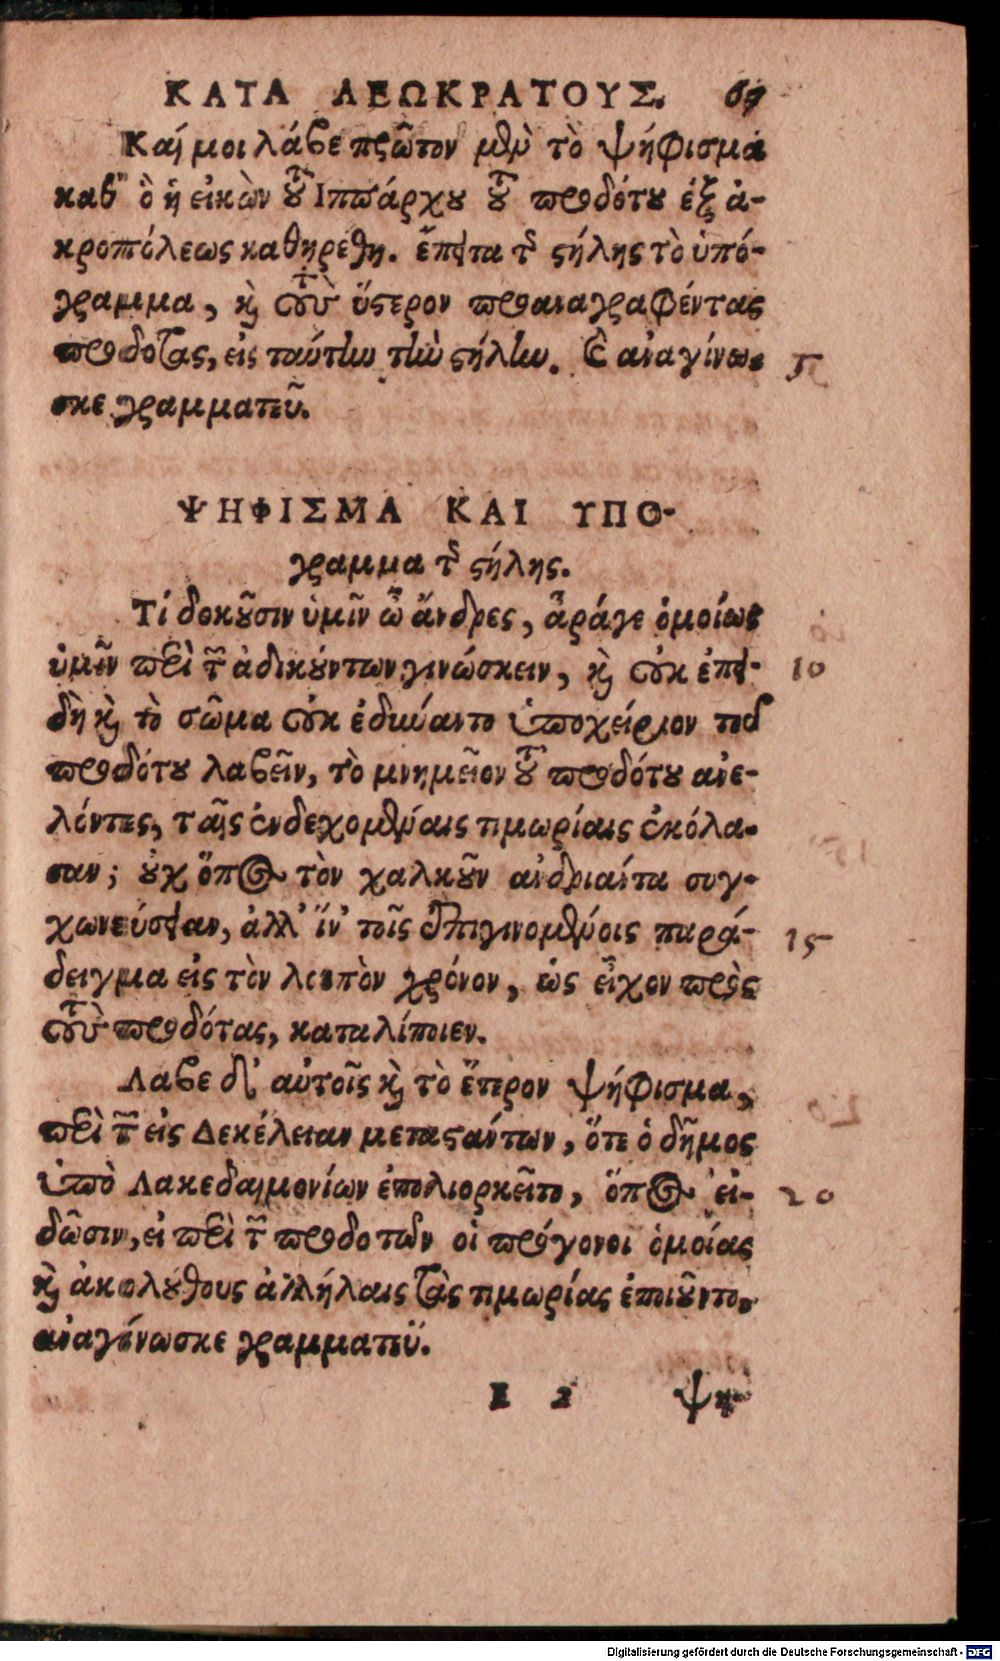 ΚΑΤΑ ΛΕΩΚΡΑΤΟΥΣ. 67
Καί μοι λάβε πρῶτον μὲν τὸ ψήφισμα
καθ' ὃ ἡ εἰκὼν τοῦ Ιππάρχου τοῦ προδότου ἐξ ἀ-
κροπόλεως καθηρέθη. ἔπειτα τῆς στήλης τὸ ὑπό-
γραμμα, καὶ τοὺς ὕστερον προαναγραφέντας
προδότας, εἰς ταύτην τὴν στήλην. Καὶ ἀναγίνω- 5
σκε γραμματεῦ.
ΨΗΦΙΣΜΑ ΚΑΙ ΥΠΟ-
γραμμα τῆς στήλης.
Τί δοκοῦσιν ὑμῖν ὦ ἄνδρες, ἆράγε ὁμοίως
ὑμῖν περὶ τῶν ἀδικούντων γινώσκειν, καὶ οὐκ ἐπει- 10
δὴ καὶ τὸ σῶμα οὐκ ἐδύναντο ὑποχείριον τοῦ
προδότου λαβεῖν, τὸ μνημεῖον τοῦ προδότου ἀνε-
λόντες, ταῖς ἐνδεχομέναις τιμωρίαις ἐκόλα-
σαν; οὐχ ὅπως τὸν χαλκοῦν ἀνδριάντα συγ-
χωνεύσειαν, ἀλλ' ἵν' τοῖς ἐπιγινομένοις παρά- 15
δειγμα εἰς τὸν λοιπὸν χρόνον, ὡς εἶχον πρὸς
τοὺς προδότας, καταλίποιεν.
Λαβε δ' αὐτοῖς καὶ τὸ ἕτερον ψήφισμα,
περὶ τῶν εἰς Δεκέλειαν μεταστάντων, ὅτε ὁ δῆμος
ὑπὸ Λακεδαιμονίων ἐπολιορκεῖτο, ὅπως εἰ- 20
δῶσιν, εἰ περὶ τῶν προδοτῶν οἱ πρόγονοι ὁμοίας
καὶ ἀκολούθους ἀλλήλαις τὰς τιμωρίας ἐποιοῦντο,
ἀναγίνωσκε γραμματεῦ.
E 2 ψη-
Digitalisierung gefördert durch die Deutsche Forschungsgemeinschaft - DFG